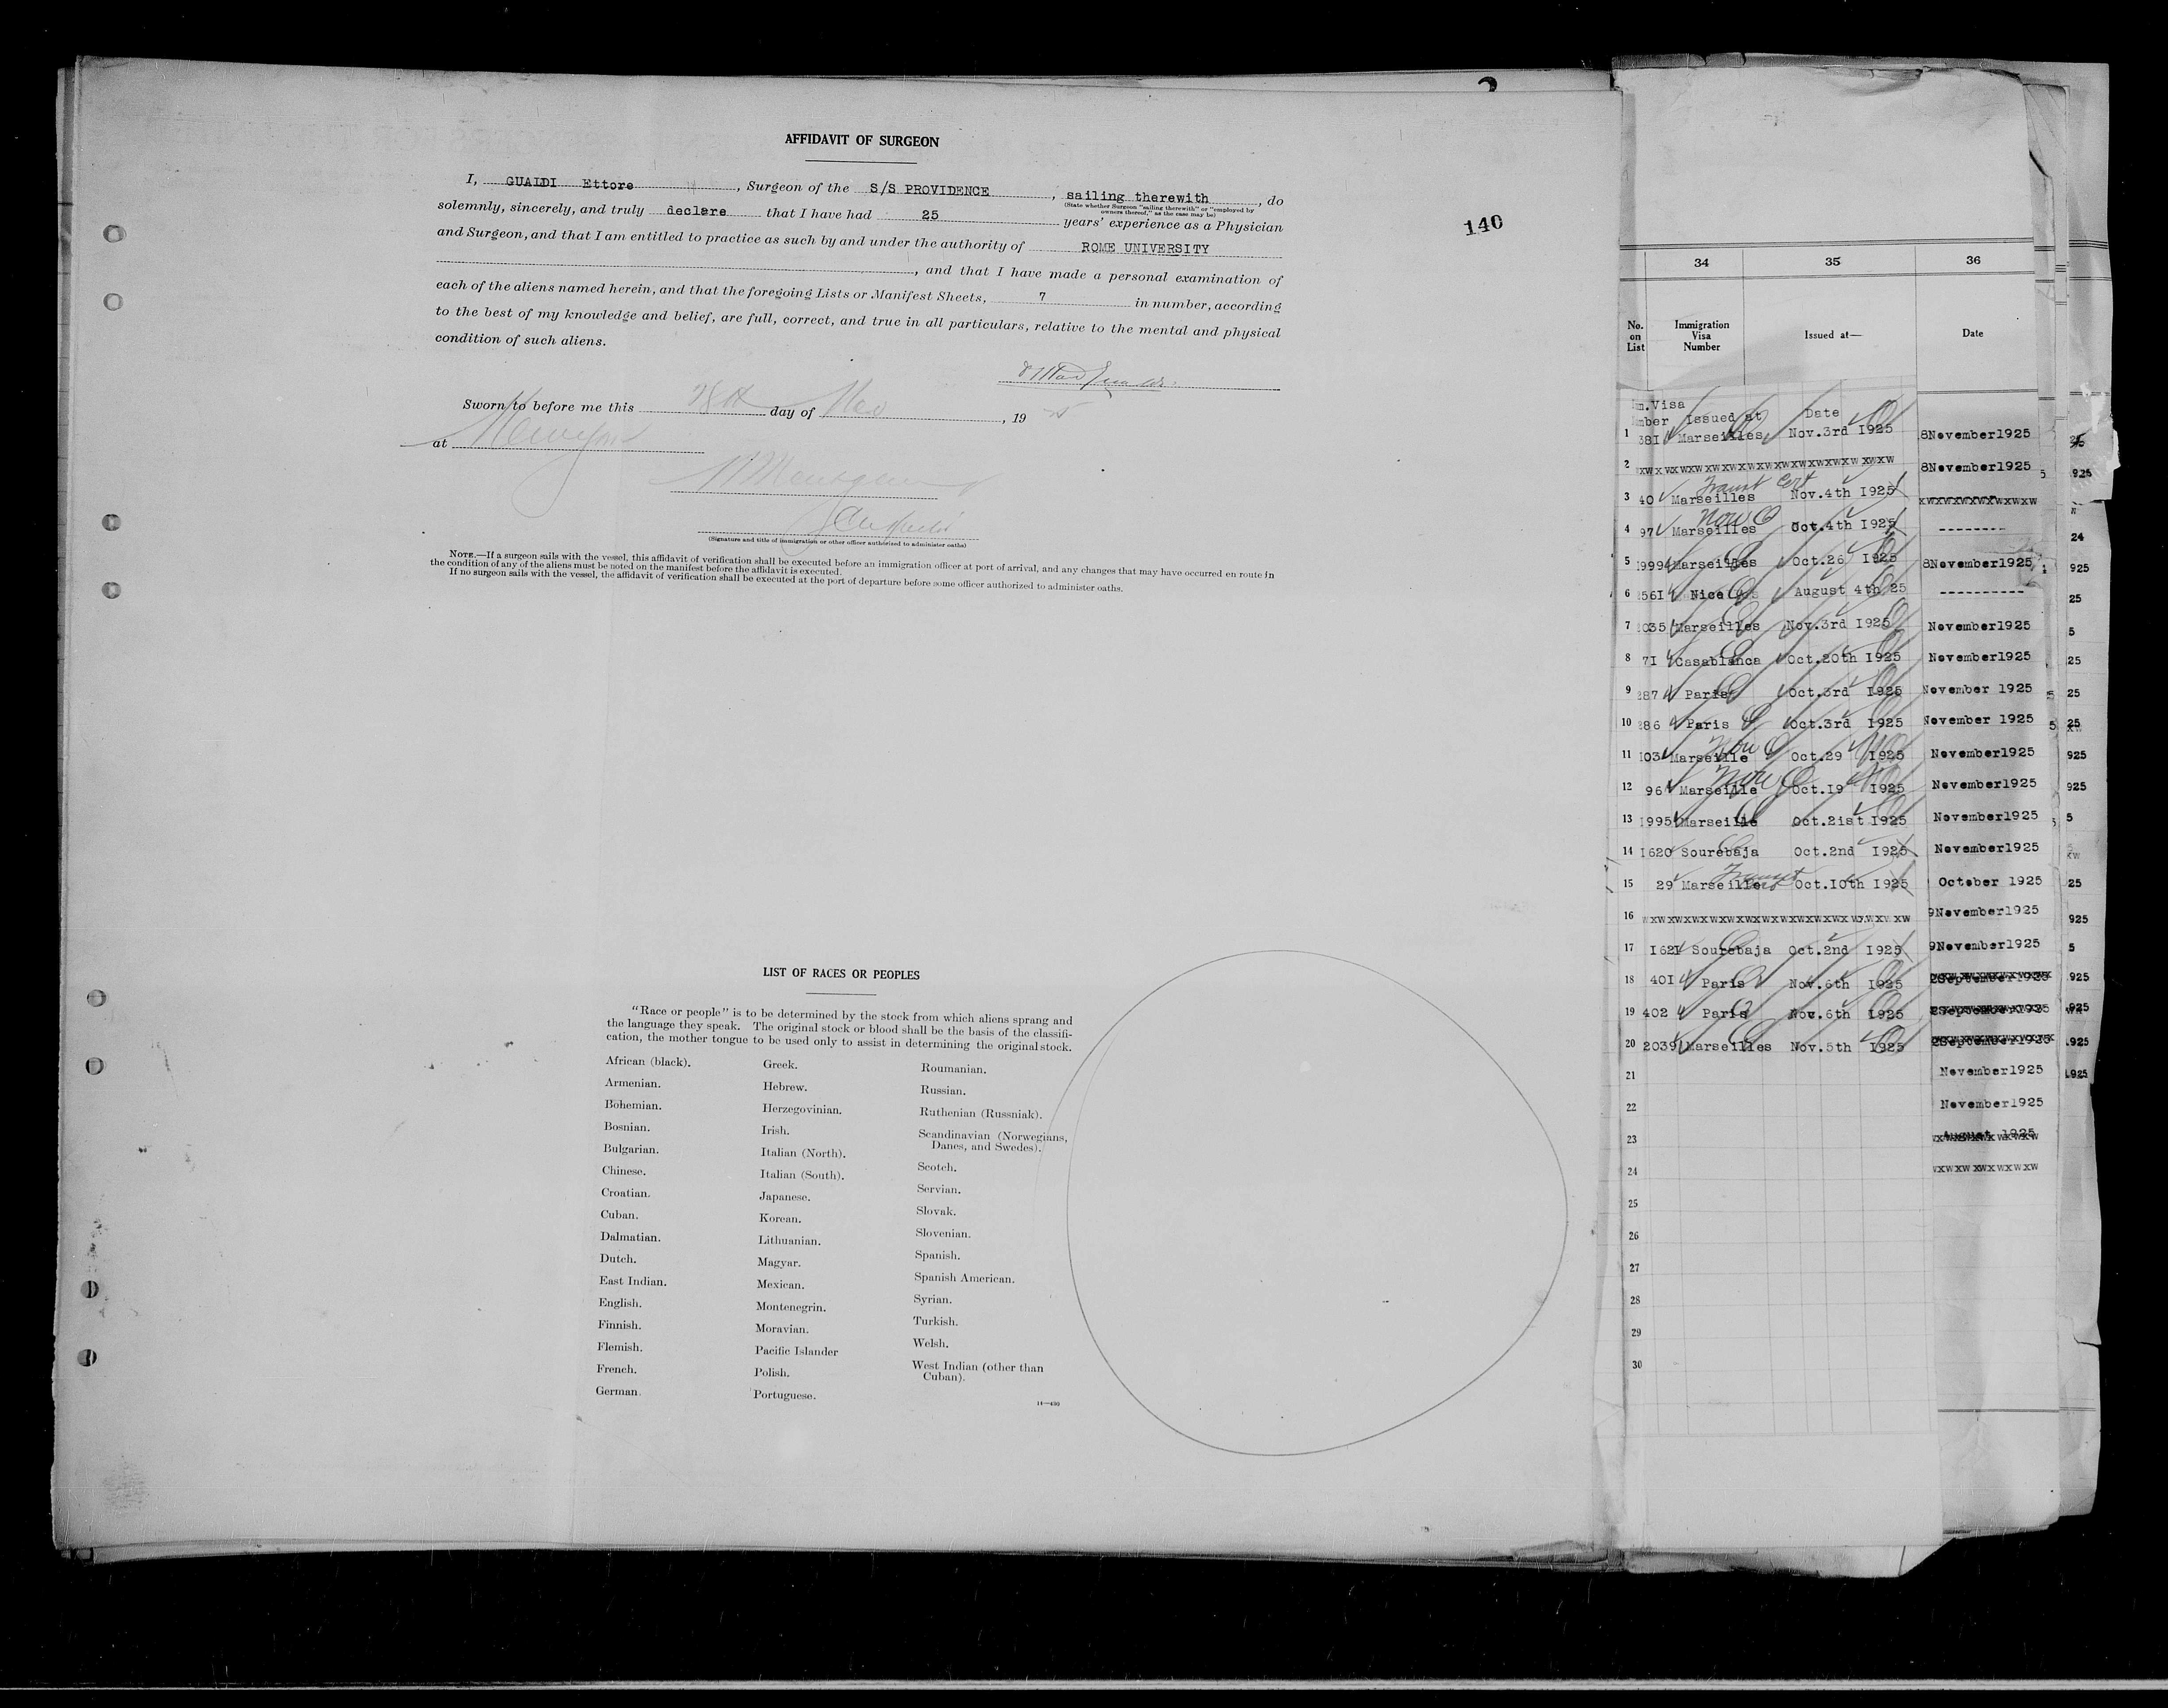 AFFIDAVIT OF SURGEON
I, GUALDI Ettore, Surgeon of the S/S PROVIDENCE, sailing therewith, do
(State whether Surgeon "sailing therewith" or "employed by
owners thereof," as the case may be)
solemnly, sincerely, and truly declare that I have had 25 years' experience as a Physician
and Surgeon, and that I am entitled to practice as such by and under the authority of ROME UNIVERSITY
, and that I have made a personal examination of
each of the aliens named herein, and that the foregoing Lists or Manifest Sheets, 7 in number, according
to the best of my knowledge and belief, are full, correct, and true in all particulars, relative to the mental and physical
condition of such aliens.
Sworn to before me this 28th day of Nov, 19 25
at New York
(Signature and title of immigration or other officer authorized to administer oaths)
NOTE.—If a surgeon sails with the vessel, this affidavit of verification shall be executed before an immigration officer at port of arrival, and any changes that may have occurred en route in
the condition of any of the aliens must be noted on the manifest before the affidavit is executed.
If no surgeon sails with the vessel, the affidavit of verification shall be executed at the port of departure before some officer authorized to administer oaths.
140
LIST OF RACES OR PEOPLES
"Race or people" is to be determined by the stock from which aliens sprang and
the language they speak. The original stock or blood shall be the basis of the classifi-
cation, the mother tongue to be used only to assist in determining the original stock.
African (black).
Armenian.
Bohemian.
Bosnian.
Bulgarian.
Chinese.
Croatian.
Cuban.
Dalmatian.
Dutch.
East Indian.
English.
Finnish.
Flemish.
French.
German.
Greek.
Hebrew.
Herzegovinian.
Irish.
Italian (North).
Italian (South).
Japanese.
Korean.
Lithuanian.
Magyar.
Mexican.
Montenegrin.
Moravian.
Pacific Islander
Polish.
Portuguese.
Roumanian.
Russian.
Ruthenian (Russniak).
Scandinavian (Norwegians,
Danes, and Swedes).
Scotch.
Servian.
Slovak.
Slovenian.
Spanish.
Spanish American.
Syrian.
Turkish.
Welsh.
West Indian (other than
Cuban).
14—430
34 35 36
No. on List Immigration Visa Number Issued at— Date
m.Visa
mber Issued at Date
1 38I Marseilles Nov.3rd I925 8November1925
2 xwxwxwxwxwxwxwxwxwxwxwxwxwxw 8November1925
Transit Cert
3 40 Marseilles Nov.4th I925 xwxwxwxwxwxwxwxw
Non Q
4 97 Marseilles Oct.4th I925 --------
5 1999 Marseilles Oct.26 I925 8November1925
6 56I Nice August 4th 25 ----------
7 2035 Marseilles Nov.3rd I925 November1925
8 7I Casablanca Oct.20th I925 November1925
9 287 Paris Oct.3rd I925 November 1925
10 286 Paris Oct.3rd I925 November 1925
Non Q
11 103 Marseille Oct.29 I925 November1925
Non Q
12 96 Marseille Oct.I9 I925 November1925
13 1995 Marseille Oct.2ist I925 November1925
14 I620 Sourebaja Oct.2nd I925 November1925
Transit
15 29 Marseille Oct.I0th I925 October 1925
16 wxwxwxwxwxwxwxwxwxwxwxwxwxwxw 9November1925
17 I62I Sourebaja Oct.2nd I925 9November1925
18 40I Paris Nov.6th I925 2September1925
19 402 Paris Nov.6th I925 2September1925
20 2039 Marseilles Nov.5th I925 2September1925
21 November1925
22 November1925
23 August 1925
24 wxwxwxwxwxwxw
25
26
27
28
29
30
925
24
925
25
5
25
25
25
925
925
5
25
925
5
925
925
925
1925